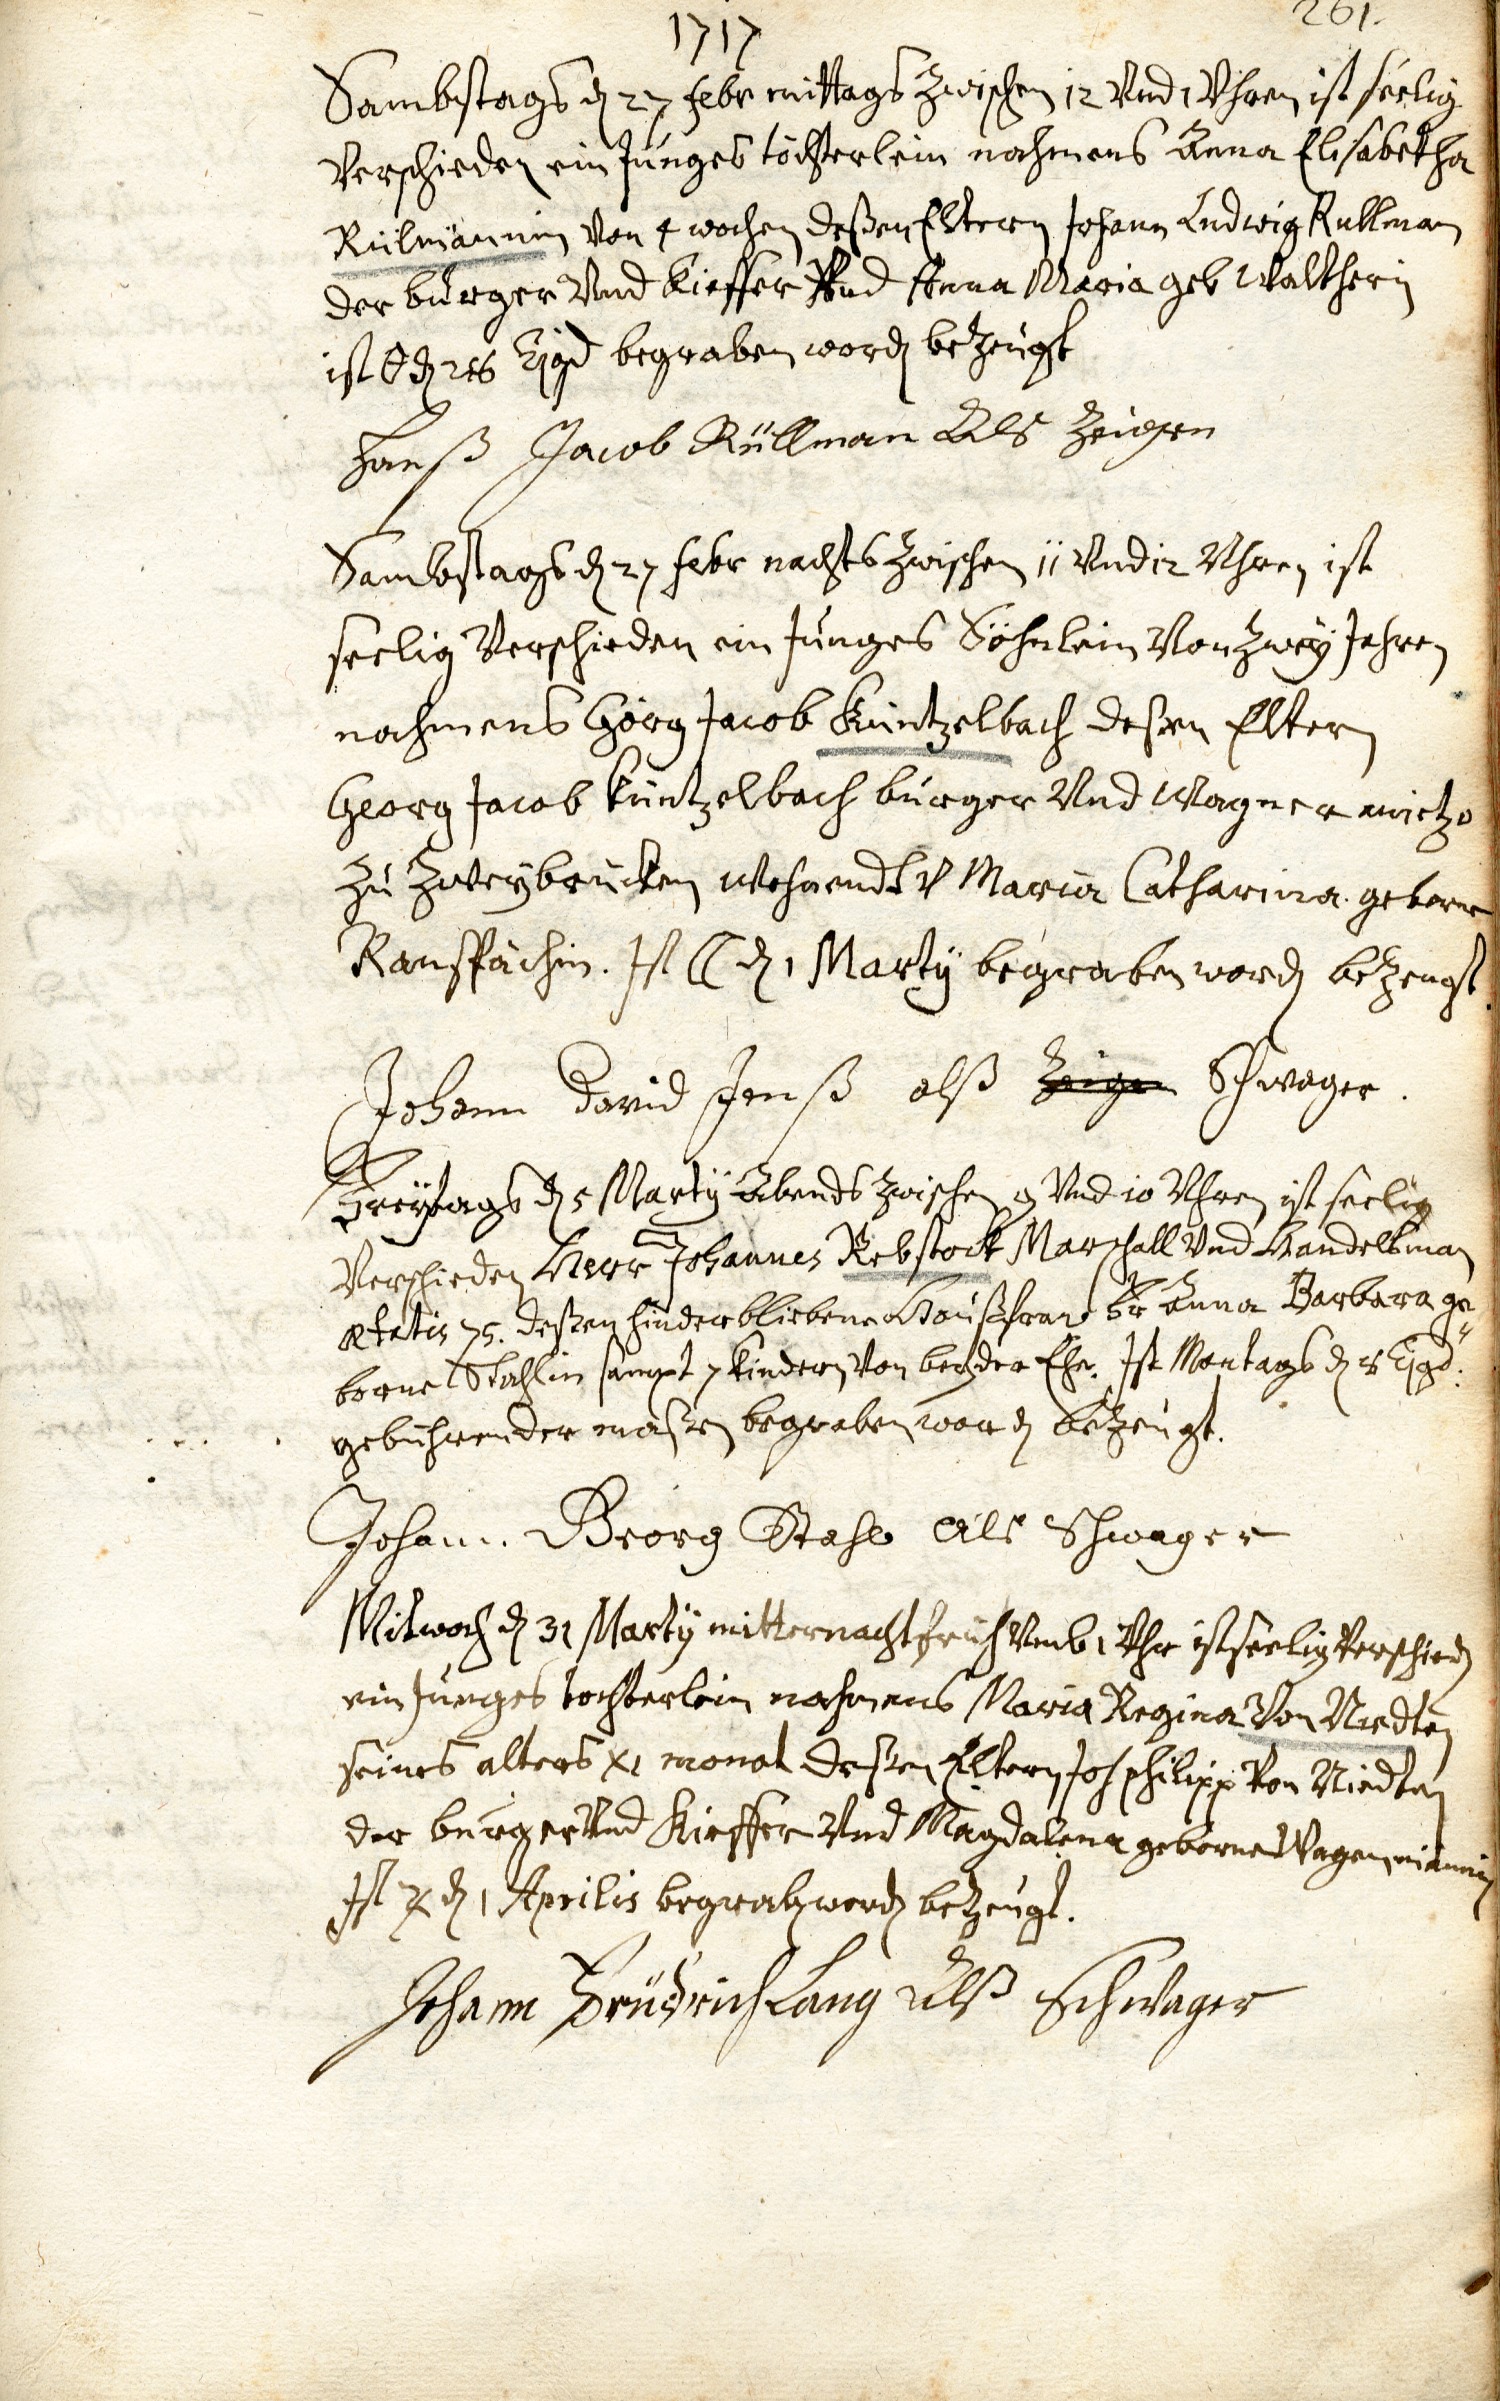 1717
261.
Sambstags d 27 febr mittags zwischen 12 Vnd 1 Vhren ist seelig
Verschieden ein Junges töchterlein nahmens Anna Elisabetha
Rülmännin Von 4 wochen deßen Eltern Johann Ludwig Rullman
der burger Vnd Kieffer Vnd Anna Maria geb Waltherin
ist ☉ d 28 Ejgd begraben word bezeugt
Hanß Jacob Rüllman Als Zeigen
Sambstags d 27 febr nachts zwischen 11 Vnd 12 Vhren ist
seelig Verschieden ein Junges Söhnlein Von zwey Jahren
nahmens Görg Jacob Küntzelbach deßen Eltern
Georg Jacob Küntzelbach burger Vnd Wagner anietzo
zu Zweybrücken wohnendt V Maria Catharina geborne
Ranspächin. Ist ☾ d 1 Martÿ begraben word bezeugt.
Johann David Jenß alß Zeigen Schwager.
Freÿtags d 5 Martÿ Abends zwischen 9 Vnd 10 Vhren ist seelig
Verschieden Herr Johannes Rebstock Marschall Vnd Handelsman
ætatis 75. deßen hinderbliebene Haußfraw Fr Anna Barbara ge-
borne Stahlin sampt 7 Kindern Von beyder Ehe. Ist Montags d 8 Ejgd:
gebührender maßen begraben word bezeugt.
Johann Georg Stahl Als Schwager
Mitwoch d 31 Martÿ mitternacht früh Vmb 1 Vhr ist seelig Verschied
ein Junges tochterlein nahmens Maria Regina Von Niedten
seines alters XI monat deßen Eltern Joh philipp Von Niedten
der burger Vnd Kieffer Vnd Magdalena geborne Wagenmännin
Ist ♃ d 1 Aprilis begrab word bezeugt.
Johann Friidrich Lang Alß Schwager